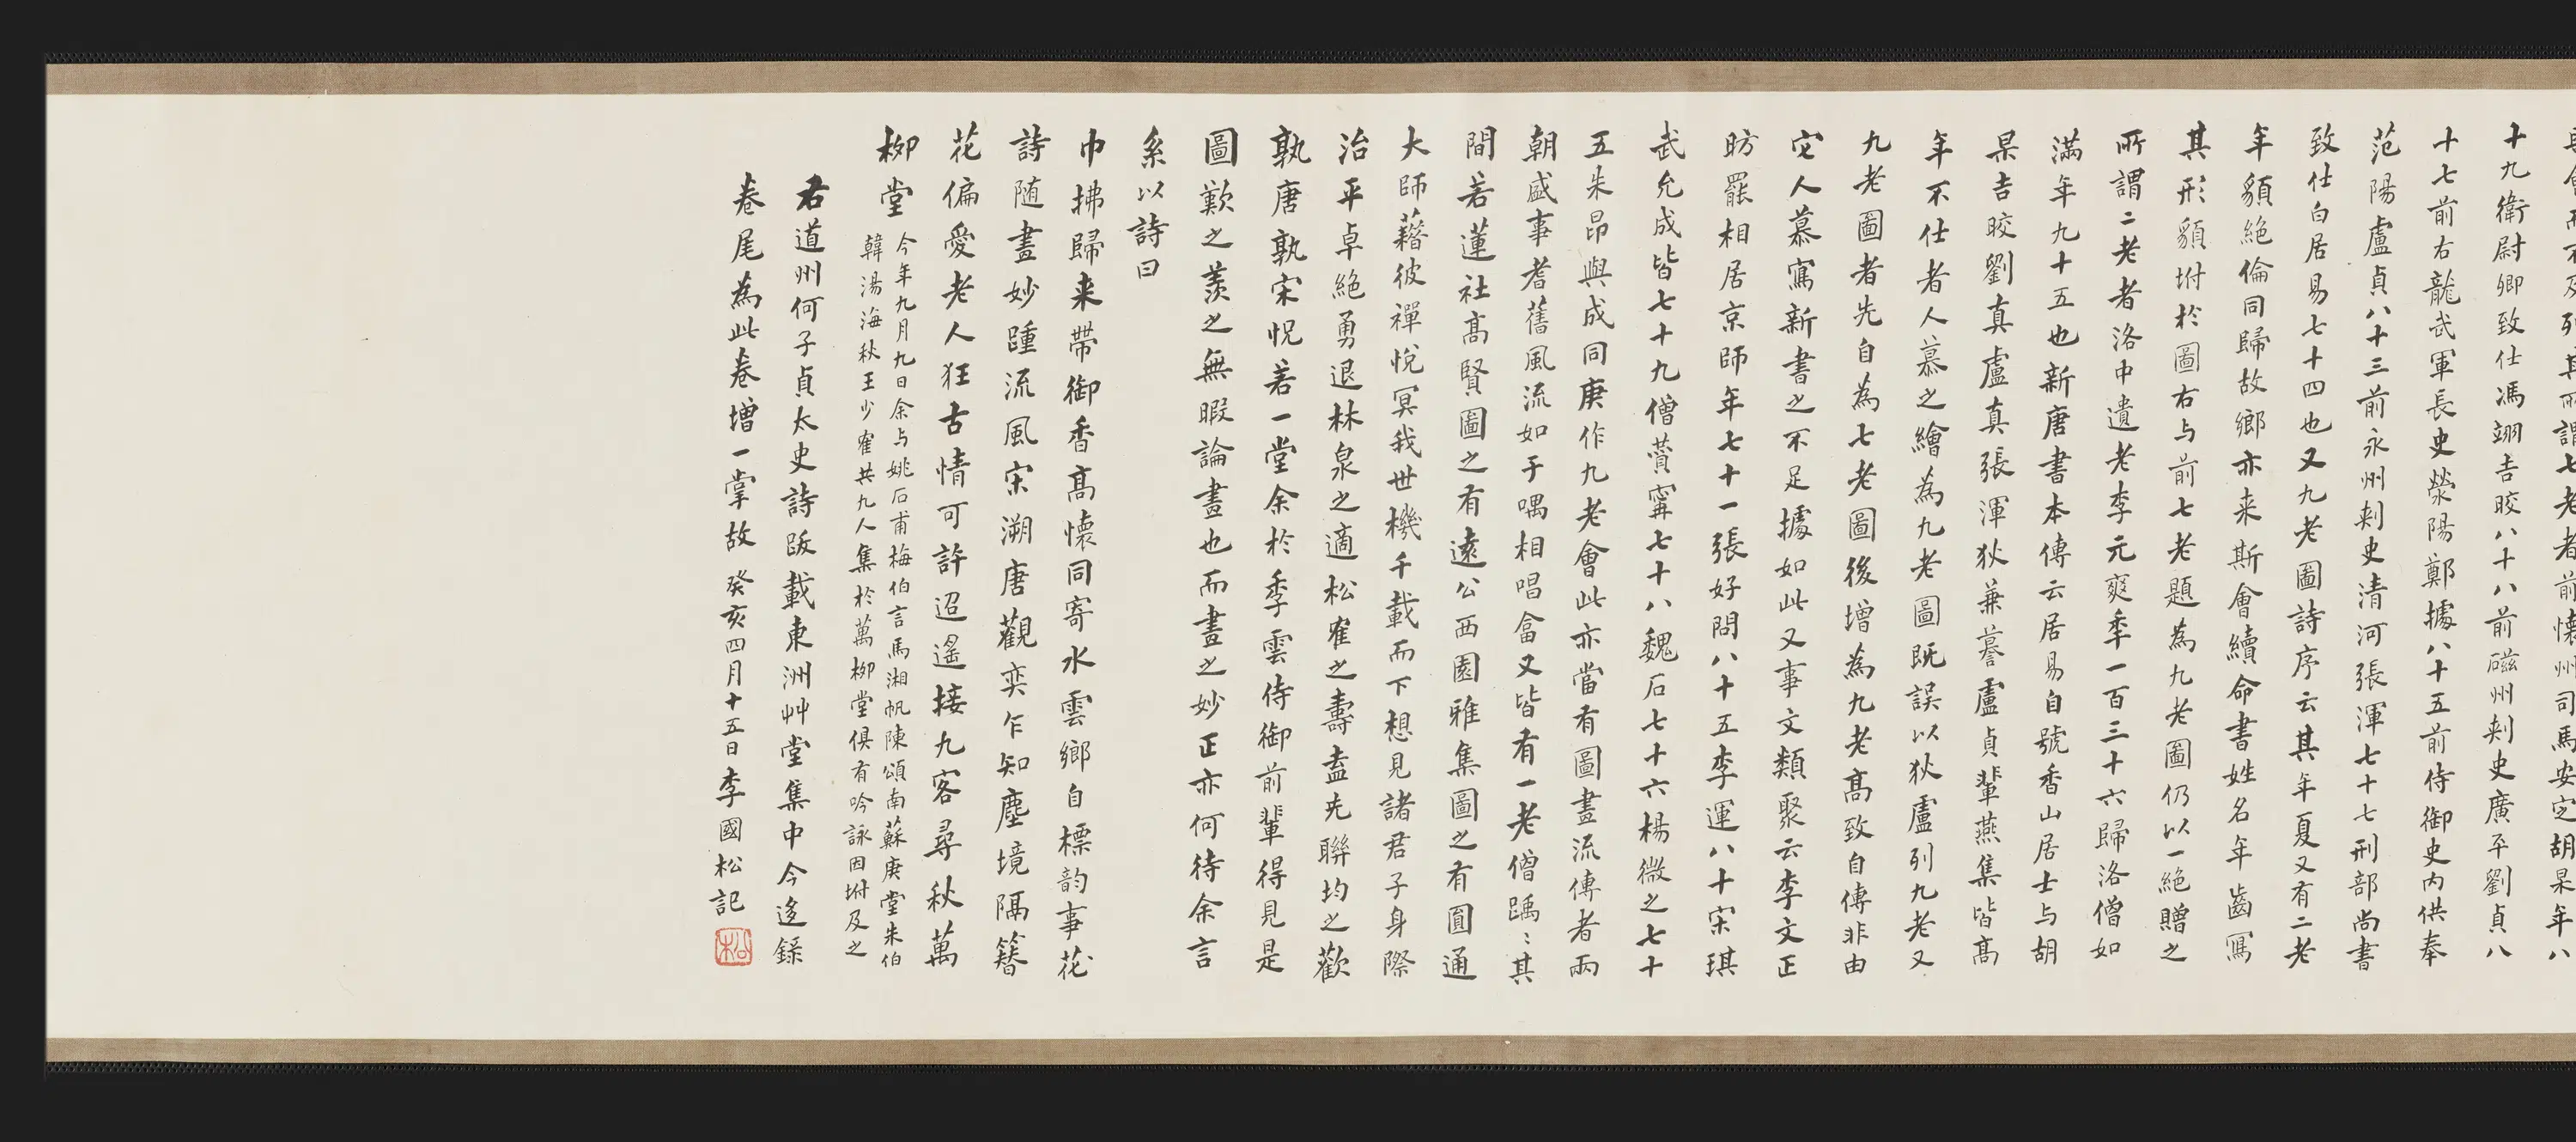 十九衛尉卿致仕馮翊吉皎八十八前磁州刺史廣平劉貞八
十七前右龍武軍長史滎陽鄭據八十五前侍御史內供奉
范陽盧貞八十三前永州刺史清河張渾七十七刑部尚書
致仕白居易七十四也又九老圖詩序云其年夏又有二老
年貌絕倫同歸故鄉亦来斯會續命書姓名年齒寫
其形貌坿於圖右与前七老題為九老圖仍以一絕贈之
所謂二老者洛中遺老李元爽年一百三十六歸洛僧如
滿年九十五也新唐書本傳云居易自號香山居士与胡
杲吉皎劉真盧真張渾狄兼謩盧貞輩燕集皆高
年不仕者人慕之繪為九老圖既誤以狄盧列九老又
九老圖者先自為七老圖後增為九老高致自傳非由
它人慕寫新書之不足據如此又事文類聚云李文正
昉罷相居京師年七十一張好問八十五李運八十宋琪
武允成皆七十九僧贊甯七十八魏石七十六楊微之七十
五朱昂與成同庚作九老會此亦當有圖畫流傳者兩
朝盛事耆舊風流如于喁相唱畣又皆有一老僧踽〻其
間若蓮社高賢圖之有遠公西園雅集圖之有圓通
大師藉彼禪悅冥我世機千載而下想見諸君子身際
治平卓絕勇退林泉之適松隺之壽盍先聯均之歡
孰唐孰宋怳若一堂余於季雲侍御前輩得見是
圖歎之羨之無暇論畫也而畫之妙正亦何待余言
系以詩曰
巾拂歸来帶御香高懷同寄水雲鄉自標韵事花
詩随畫妙踵流風宋溯唐觀奕乍知塵境隔簪
花偏愛老人狂古情可許迢遙接九客尋秋萬
柳堂
今年九月九日余与姚石甫梅伯言馬湘帆陳頌南蘇庚堂朱伯
韓湯海秋王少隺共九人集於萬柳堂俱有吟詠因坿及之
右道州何子貞太史詩跋載東洲艸堂集中今迻錄
卷尾為此卷增一掌故 癸亥四月十五日李國松記
松